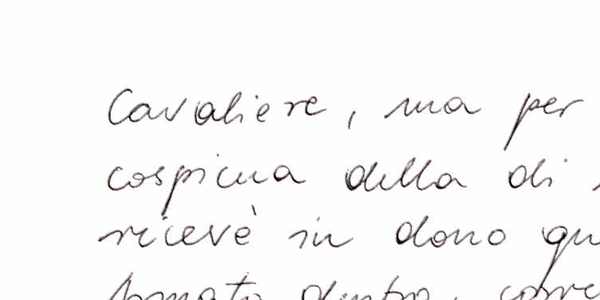 Cavaliere, ma per
cospicua della di
ricevè in dono qu